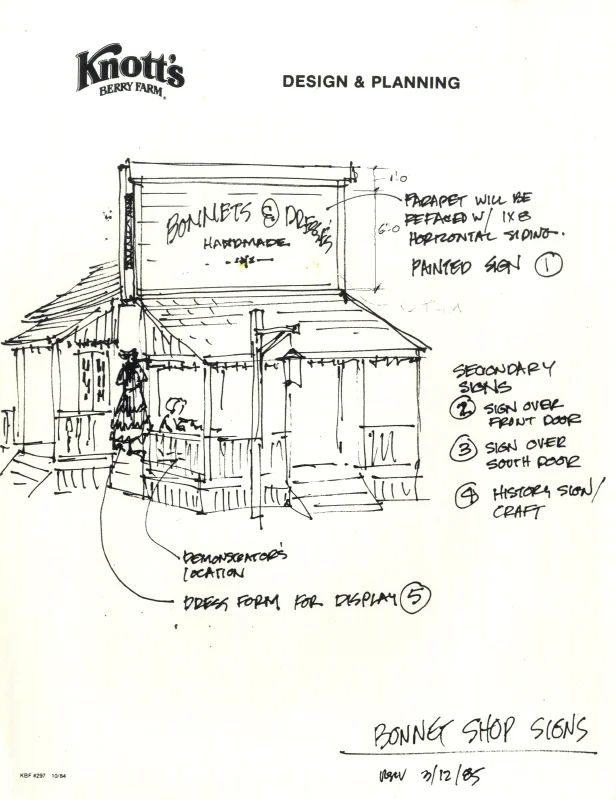 Knott's
BERRY FARM®
DESIGN & PLANNING
BONNETS & DRESSES
HANDMADE
1'-0
6'-0
PARAPET WILL BE
REFACED W/ 1X8
HORIZONTAL SIDING.
PAINTED SIGN 1
SECONDARY
SIGNS
2 SIGN OVER
FRONT DOOR
3 SIGN OVER
SOUTH DOOR
4 HISTORY SIGN/
CRAFT
DEMONSTRATOR'S
LOCATION
DRESS FORM FOR DISPLAY 5
BONNET SHOP SIGNS
3/12/85
KBF #297 10/84